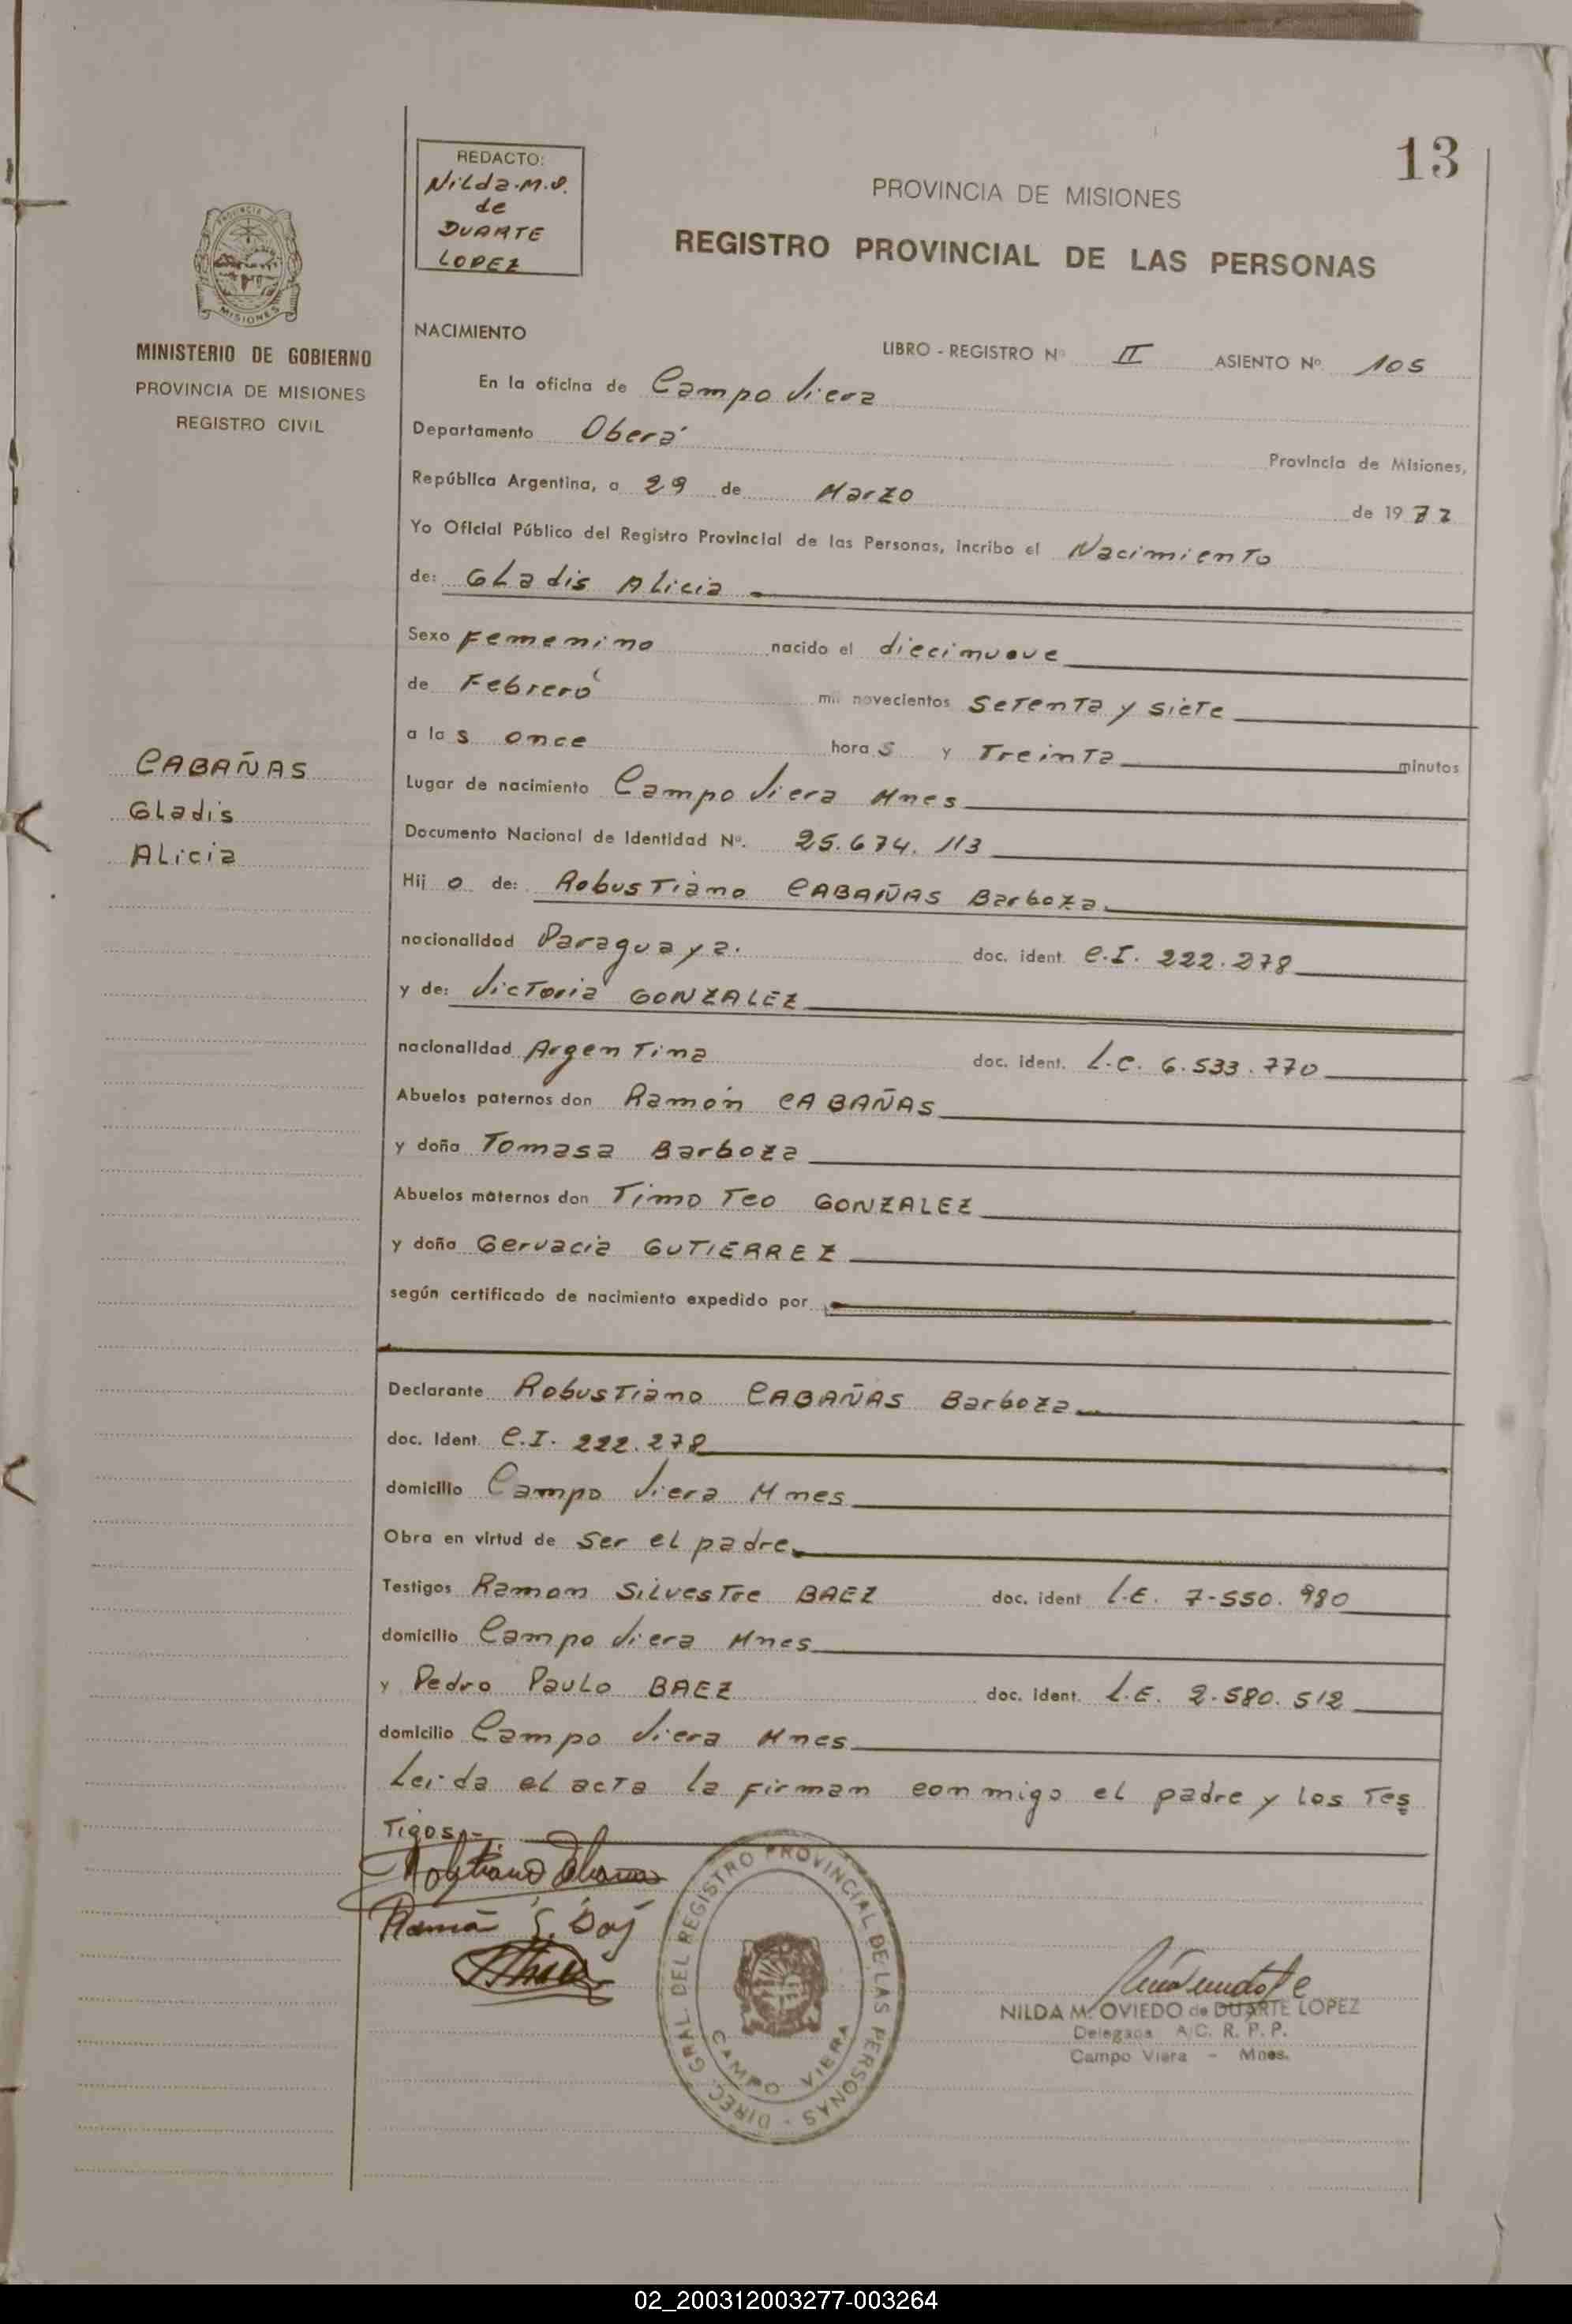 13
REDACTO:
Nilda.M.O.
de
DUARTE
LOPEZ
PROVINCIA DE MISIONES
REGISTRO PROVINCIAL DE LAS PERSONAS
PROVINCIA DE
MISIONES
MINISTERIO DE GOBIERNO
PROVINCIA DE MISIONES
REGISTRO CIVIL
NACIMIENTO
LIBRO - REGISTRO Nº II ASIENTO Nº. 105
En la oficina de Campo Viera
Departamento Oberá Provincia de Misiones,
República Argentina, a 29 de Marzo de 1977
Yo Oficial Público del Registro Provincial de las Personas, incribo el Nacimiento
de: Gladis Alicia
Sexo Femenino nacido el diecinueve
de Febrero mil novecientos setenta y siete
a las once horas y Treinta minutos
CABAÑAS
Gladis
Alicia
Lugar de nacimiento Campo Viera Mnes
Documento Nacional de Identidad Nº. 25.674.113
Hijo de: Robustiano CABAÑAS Barboza
nacionalidad Paraguaya. doc. ident. C.I. 222.278
y de: Victoria GONZALEZ
nacionalidad Argentina doc. ident. L.C. 6.533.770
Abuelos paternos don Ramón CABAÑAS
y doña Tomasa Barboza
Abuelos maternos don Timoteo GONZALEZ
y doña Gervacia GUTIERREZ
según certificado de nacimiento expedido por
Declarante Robustiano CABAÑAS Barboza
doc. Ident. C.I. 222.278
domicilio Campo Viera Mnes
Obra en virtud de ser el padre
Testigos Ramon Silvestre BAEZ doc. ident L.E. 7-550.980
domicilio Campo Viera Mnes
y Pedro Paulo BAEZ doc. ident. L.E. 2-580.512
domicilio Campo Viera Mnes
Leida el acta la firman conmigo el padre y los Tes
Tigos.-
Ramón S.
DIREC. GRAL. DEL REGISTRO PROVINCIAL DE LAS PERSONAS -
CAMPO VIERA
NILDA M. OVIEDO de DUARTE LOPEZ
Delegada A/C. R. P. P.
Campo Viera - Mnes.
02_200312003277-003264